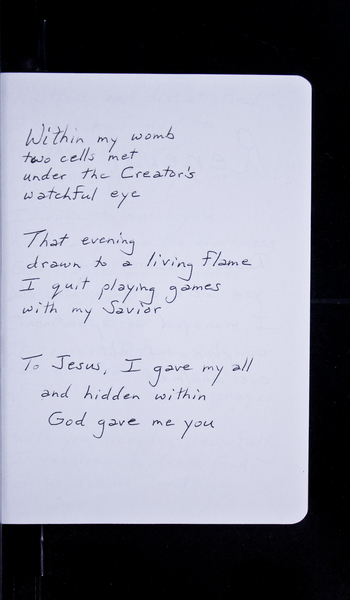 Within my womb
two cells met
under the Creator's
watchful eye
That evening
drawn to a living flame
I quit playing games
with my Savior
To Jesus, I gave my all
and hidden within
God gave me you